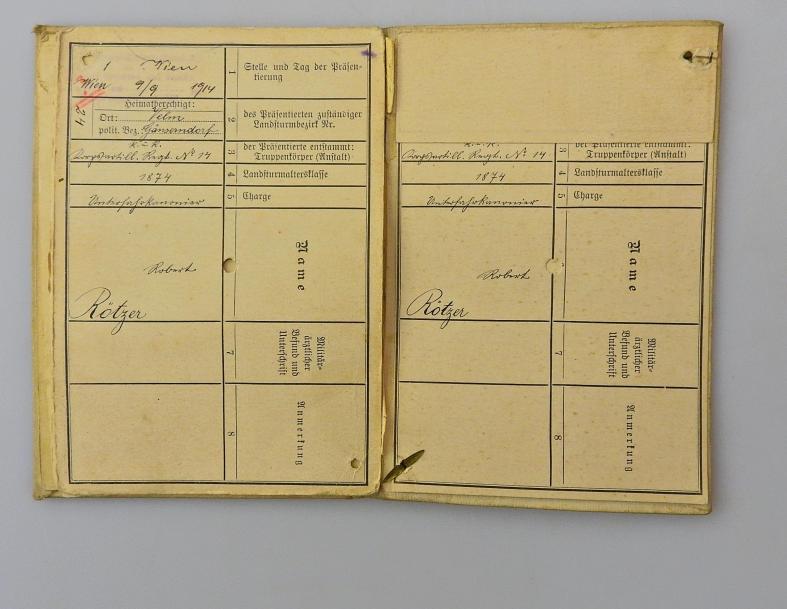 1 Wien
Wien 9/9 1914
1
Stelle und Tag der Präsen-
tierung
24
Heimatberechtigt:
Ort: Velm
polit. Bez. Gänserndorf
2
des Präsentierten zuständiger
Landsturmbezirk Nr.
k.u.k.
Korpsartill. Regt. No 14
3
der Präsentierte entstammt:
Truppenkörper (Anstalt)
1874
4
Landsturmaltersklasse
Unterfahrkanonier
5
Charge
Robert
Rötzer
Name
7
Militär-
ärztlicher
Befund und
Unterschrift
8
Anmerkung
k.u.k.
Korpsartill. Regt. No 14
3
der Präsentierte entstammt:
Truppenkörper (Anstalt)
1874
4
Landsturmaltersklasse
Unterfahrkanonier
5
Charge
Robert
Rötzer
Name
7
Militär-
ärztlicher
Befund und
Unterschrift
8
Anmerkung